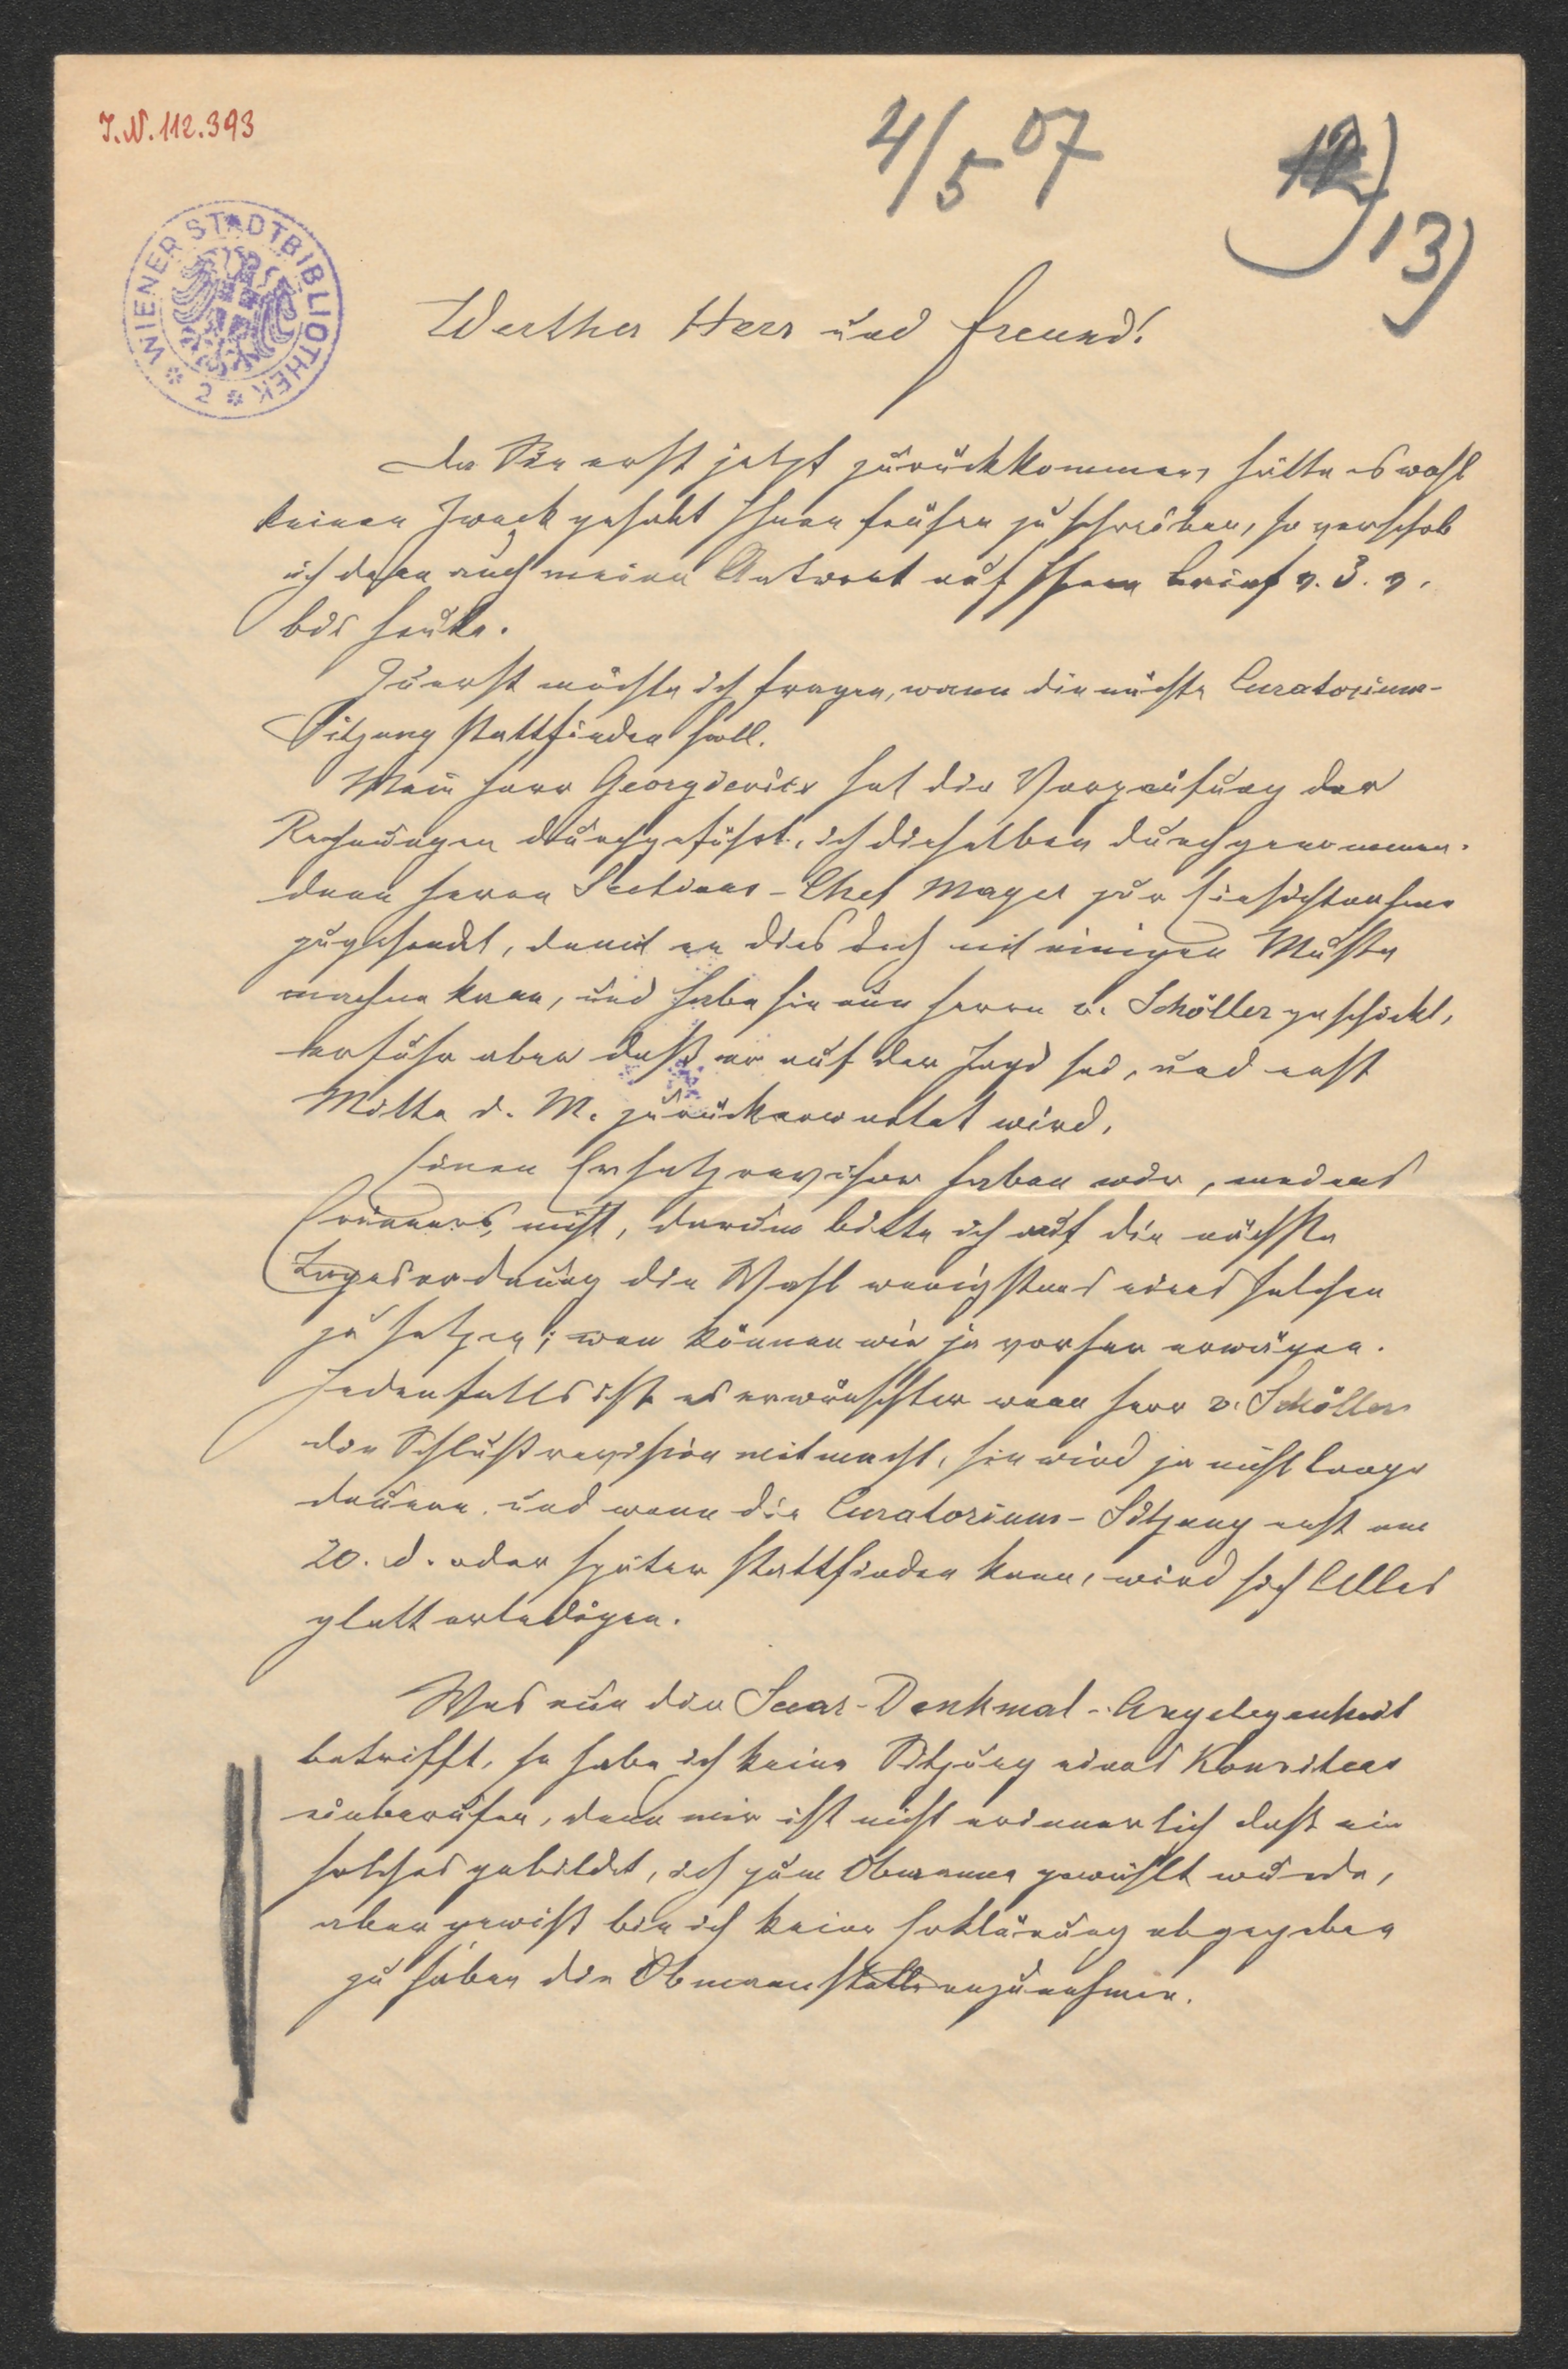 I.N. 112.393
4/5 07
12)
13)
WIENER STADTBIBLIOTHEK
Werther Herr und Freund!
Da Sie erst jetzt zurückkommen, hätte es wohl
keinen Zweck gehabt Ihnen früher zu schreiben, so verschob
ich denn auch meine Antwort auf Ihren Brief v. 3. v.
bis heute.
Zuerst möchte ich fragen, wann die nächste Curatoriums-
Sitzung stattfinden soll.
Mein Herr Georgievics hat die Vorprüfung der
Rechnungen durchgeführt, ich dieselben durchgenommen.
dann Herrn Sections-Chef Mayer zur Einsichtnahme
zugesendet, damit er dies doch mit einigen Muße
machen kann, und habe sie nun Herrn v. Schöller geschickt,
erfuhr aber daß er auf der Jagd sei, und erst
Mitte d. M. zurückerwartet wird.
Einen Ersatzrevisor haben wir, meines
Erinnerns, nicht, darum bitte ich auf die nächste
Tagesordnung die Wahl wenigstens eines solchen
zu setzen; wen können wir ja vorher erwägen.
Jedenfalls ist es erwünschter wenn Herr v. Schöller
die Schlußrevision mitmacht, sie wird ja nicht lange
dauern und wenn die Curatoriums-Sitzung erst am
20. d. oder später stattfinden kann, wird sich Alles
glatt erledigen.
Was nun die Saar-Denkmal-Angelegenheit
betrifft, so habe ich keine Sitzung eines Komitees
einberufen, denn mir ist nicht erinnerlich daß ein
solches gebildet, ich zum Obmanne gewählt wurde,
aber gewiß bin ich keine Erklärung abgegeben
zu haben die Obmannstelle anzunehmen.